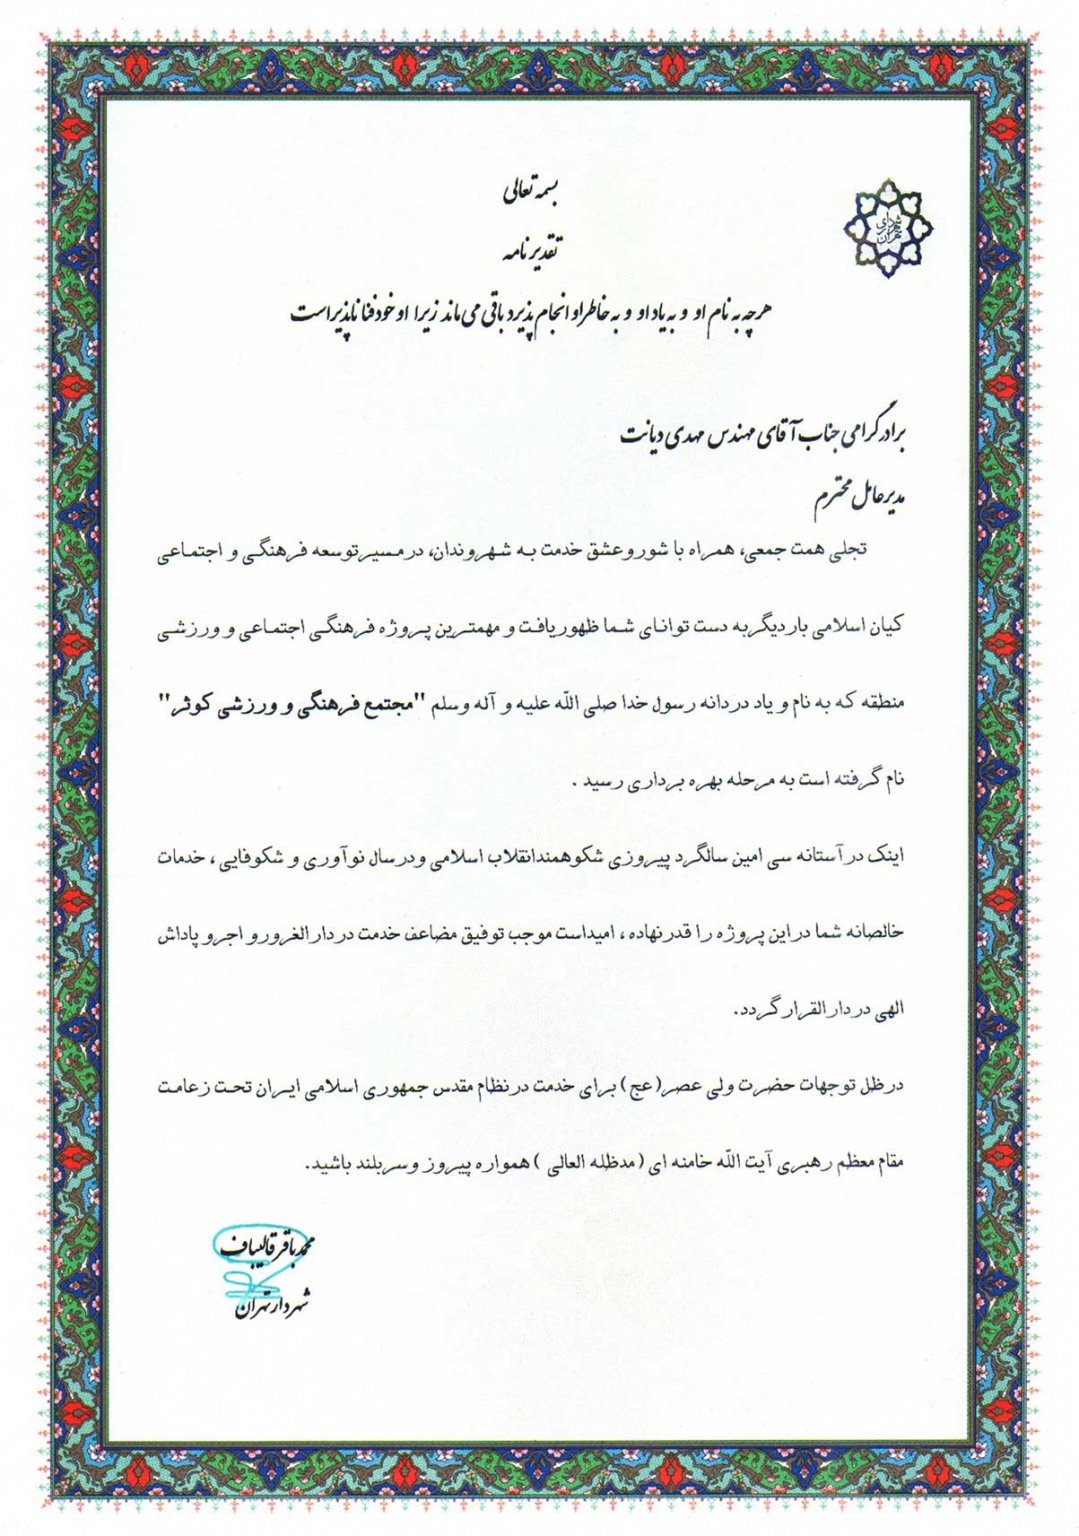 بسمه تعالی
شهرداری
تهران
تقدیر نامه
هر چه به نام او و به یاد او و به خاطر او انجام پذیرد باقی می ماند زیرا او خود فنا ناپذیر است
برادر گرامی جناب آقای مهندس مهدی دیانت
مدیر عامل محترم
تجلی همت جمعی، همراه با شور و عشق خدمت به شهروندان، در مسیر توسعه فرهنگی و اجتماعی
کیان اسلامی بار دیگر به دست توانای شما ظهور یافت و مهمترین پروژه فرهنگی اجتماعی و ورزشی
منطقه که به نام و یاد دردانه رسول خدا صلی الله علیه و آله وسلم "مجتمع فرهنگی و ورزشی کوثر"
نام گرفته است به مرحله بهره برداری رسید .
اینک در آستانه سی امین سالگرد پیروزی شکوهمند انقلاب اسلامی و در سال نوآوری و شکوفایی ، خدمات
خالصانه شما در این پروژه را قدر نهاده ، امید است موجب توفیق مضاعف خدمت در دار الغرور و اجر و پاداش
الهی در دار القرار گردد.
در ظل توجهات حضرت ولی عصر (عج) برای خدمت در نظام مقدس جمهوری اسلامی ایران تحت زعامت
مقام معظم رهبری آیت الله خامنه ای ( مدظله العالی ) همواره پیروز و سربلند باشید.
محمد باقر قالیباف
شهردار تهران